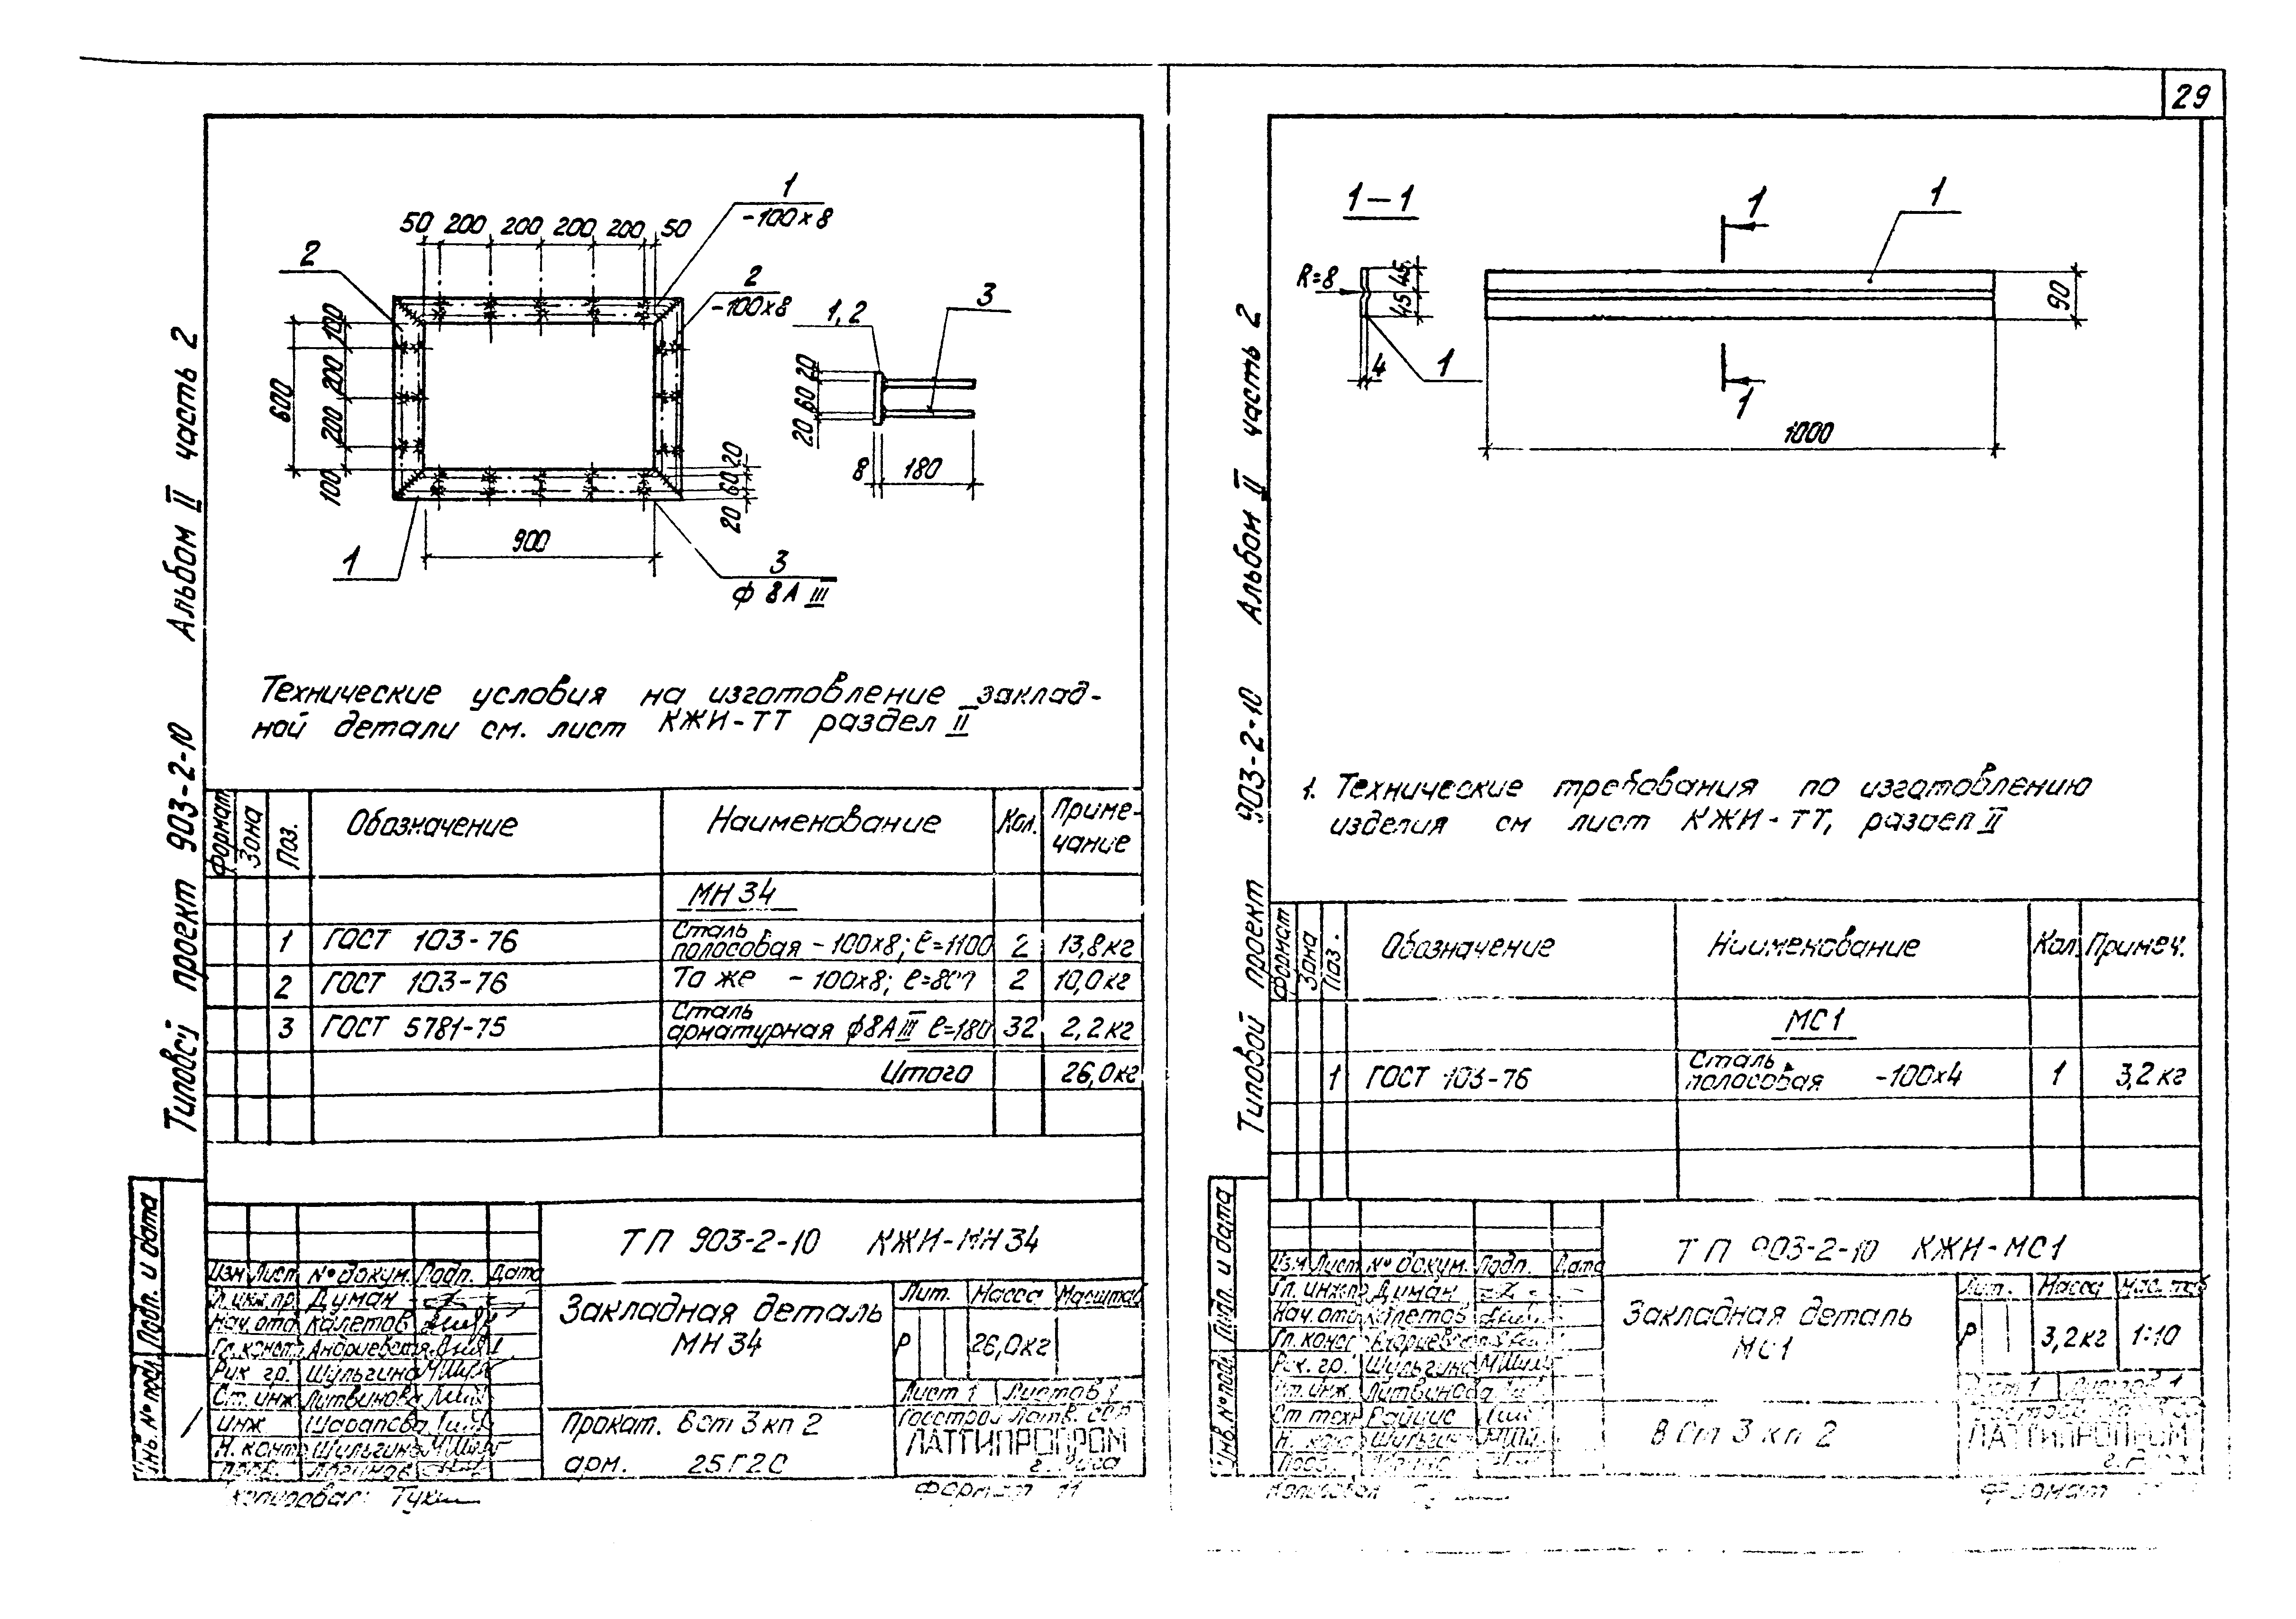 29
Типовой проект 903-2-10 Альбом II часть 2
Подп. и дата
Инв. № подл.
1
-100×8
50 200 200 200 200 50
2
2
-100×8
100
200
200
100
600
900
20
60
20
1
3
ф 8А III
1,2
3
20
60
20
8 180
Технические условия на изготовление заклад-
ной детали см. лист КЖИ-ТТ раздел II
Формат Зона Поз. Обозначение Наименование Кол. Приме-
чание
МН 34
1 ГОСТ 103-76 Сталь
полосовая -100×8; ℓ=1100 2 13,8кг
2 ГОСТ 103-76 То же -100×8; ℓ=800 2 10,0кг
3 ГОСТ 5781-75 Сталь
арматурная ф8АIII ℓ=180 32 2,2кг
Итого 26,0кг
ТП 903-2-10 КЖИ-МН34
Изм Лист № докум. Подп. Дата
Гл. инж. пр. Думан
Нач. отд Калетов
Гл. конст. Андриевская
Рук гр. Шульгина
Ст. инж Литвинова
Инж Шарапова
Н. конт. Шульгина
Закладная деталь
МН 34
Лит. Масса Масштаб
Р 26,0кг
Лист 1 Листов 1
Прокат. Вст 3 кп 2
арм. 25Г2С
Госстрой Латв. ССР
ЛАТГИПРОПРОМ
г. Рига
Копировал:
Формат 11
Типовой проект 903-2-10 Альбом II часть 2
Подп. и дата
Инв. № подл.
1-1
R=8
45
45
4
1
1
1
1
90
1000
1. Технические требования по изготовлению
изделия см лист КЖИ-ТТ, раздел II
Формат Зона Поз. Обозначение Наименование Кол. Примеч.
МС1
1 ГОСТ 103-76 Сталь
полосовая -100×4 1 3,2кг
ТП 903-2-10 КЖИ-МС1
Изм Лист № докум. Подп. Дата
Гл. инж.пр Думан
Нач. отд Калетов
Гл. конст Андриевская
Рук. гр. Шульгина
Ст. инж. Литвинова
Ст техн
Н. конт Шульгина
Закладная деталь
МС1
Лит. Масса Масштаб
Р 3,2кг 1:10
Лист 1 Листов 1
В Ст 3 кп 2
ЛАТГИПРОПРОМ
Копировал
Формат